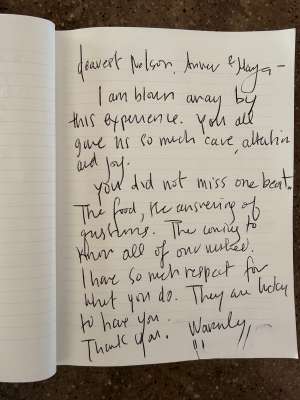 dearest Nelson, Anver & Maya -
I am blown away by
this experience. You all
gave us so much care, attention
and joy.
You did not miss one beat.
The food, the answering of
questions. The coming to
know all of our
I have so much respect for
what you do. They are lucky
to have you.
Thank you. Warmly,